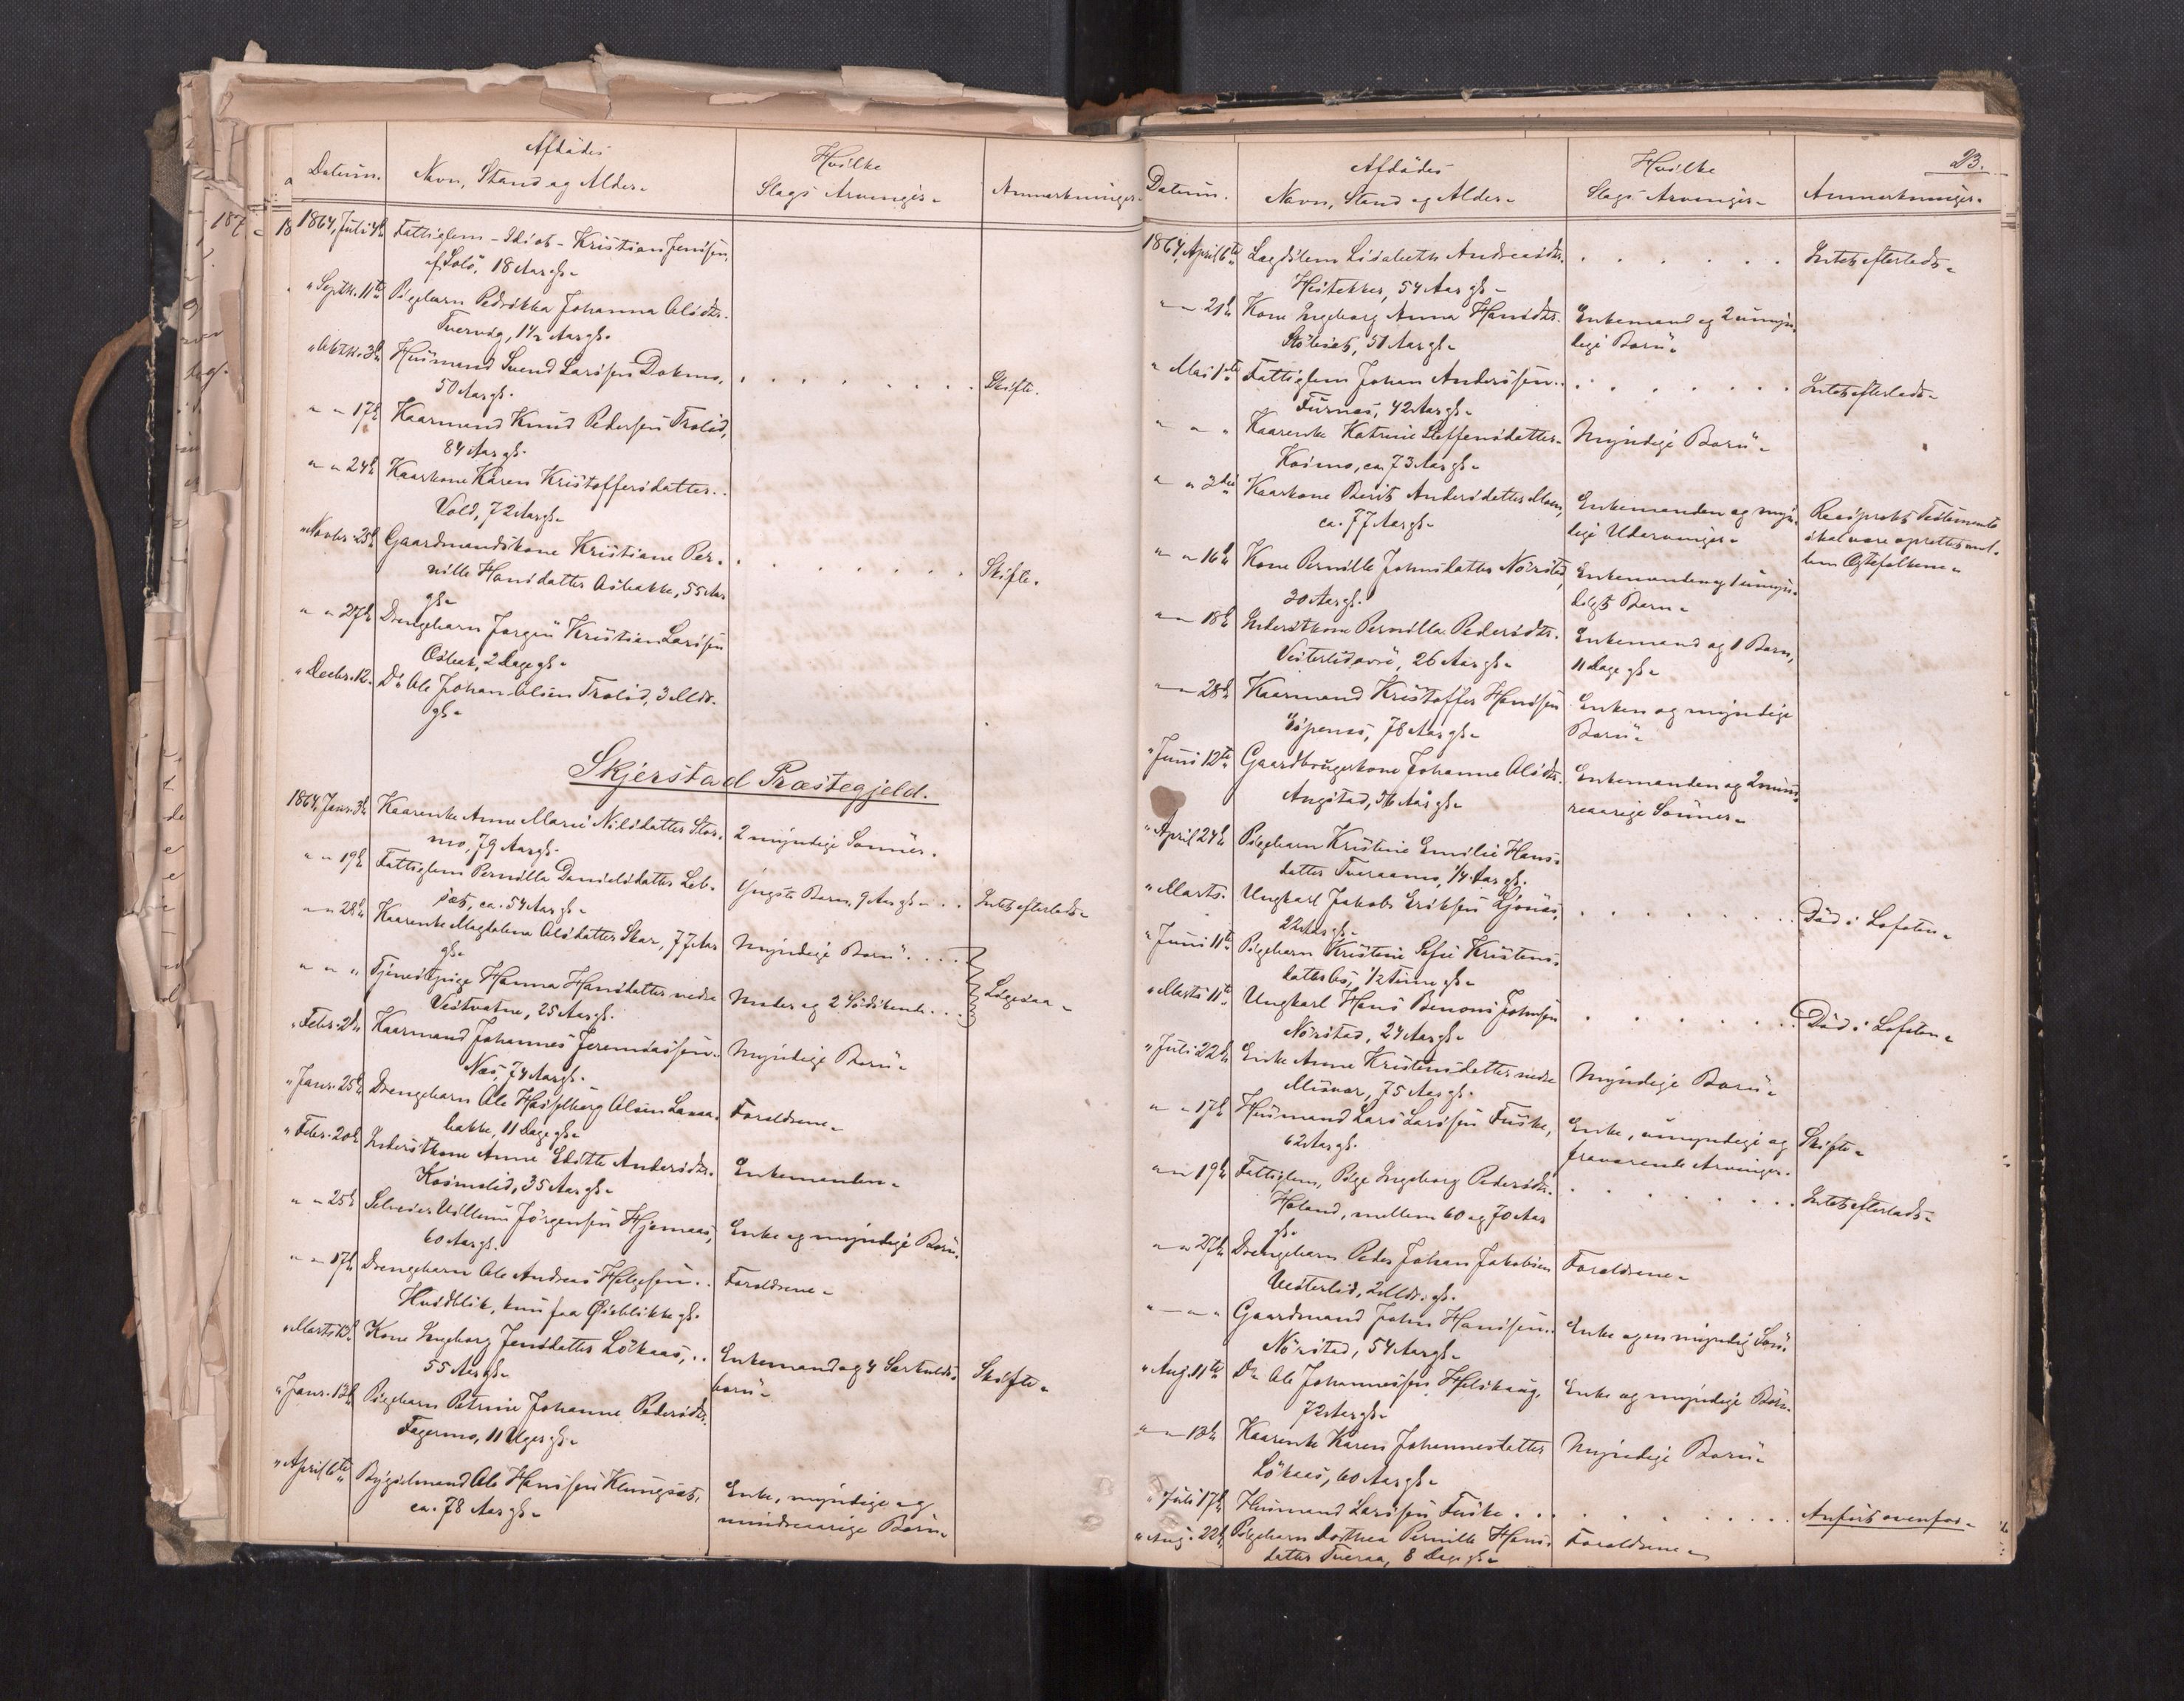 Datum.
Afdödes
Navn, Stand og Alder.
Hvilke
Slags Arvinger.
Anmærkninger.
1864, Juli 4de
Fattiglem - Idiot - Kristian Jenssen,
af Solö, 18 Aar gl.
" Septbr. 11te
Pigebarn Pedrikka Johanna Olsdtr.
Tvervig, 1½ Aar gl.
" Oktbr. 3de
Husmand Svend Larssen Dokmo,
50 Aar gl.
Skifte.
" " 17de
Kaarmand Knud Pedersen Trolid,
84 Aar gl.
" " 24de
Kaarkone Karen Kristoffersdatter
Vold, 72 Aar gl.
" Novbr. 25de
Gaardmandskone Kristiane Per-
nille Hansdatter Osbakke, 55 Aar
gl.
Skifte.
" " 27de
Drengebarn Jørgen Kristian Larssen
Osbak, 2 Dage gl.
" Decbr. 12.
Do Ole Johan Olsen Trolid, 3 Mdr.
gl.
Skjerstad Præstegjeld.
1864, Janr. 3de
Kaarenke Anne Marie Nilsdatter Stor-
mo, 79 Aar gl.
2 myndige Sønner.
" " 19de
Fattiglem Pernilla Danielsdatter Leb-
sæt, ca. 54 Aar gl.
Yngste Barn, 9 Aar gl.
Intet efterladt.
" " 28de
Kaarenke Magdalena Olsdatter Skar, 77 Aar
gl.
Myndige Børn
" " "
Tjenestpige Hanna Hansdatter nedre
Vestvatne, 25 Aar gl.
Moder og 2 Södskende
Ligesaa.
" Febr. 2de
Kaarmand Johannes Jeremiassen
Næs, 74 Aar gl.
Myndige Børn.
" Janr. 25de
Drengebarn Ole Hasselberg Olsen
bakke, 11 Dage gl.
Forældrene.
" Febr. 20de
Inderstkone Anne Editte Andersdtr.
Kosmolid, 35 Aar gl.
Enkemanden.
" " 25de
Selveier Villum Jörgensen Hjemaas,
60 Aar gl.
Enke og myndige Børn.
" " 17de
Drengebarn Ole Andreas Helgesen
Hvidblik, kun faa Øieblikke gl.
Forældrene.
" Marts 13de
Kone Ingeborg Jensdatter Lökaas,
55 Aar gl.
Enkemand og 4 Særkulds-
børn.
Skifte.
" Janr. 12de
Pigebarn Petrine Johanne Pedersdtr.
Fagermo, 11 Uger gl.
" April 6te
Bygselmand Ole Hanssen Klungset,
ca. 78 Aar gl.
Enke, myndige og
mindreaarige Børn.
23.
Datum.
Afdödes
Navn, Stand og Alder.
Hvilke
Slags Arvinger.
Anmærkninger.
1864, April 6te
Lægdslem Lisabeth Andreasdtr.
Hestekker, 54 Aar gl.
Intet efterladt.
" " 21de
Kone Ingeborg Anna Hansdtr.
51 Aar gl.
Enkemand og 2 umyn-
dige Børn.
" Mai 1ste
Fattiglem Johan Anderssen
Furnes, 42 Aar gl.
Intet efterladt.
" " "
Kaarenke Katrine Steffensdatter
Kosmo, ca. 73 Aar gl.
Myndige Børn.
" " 3die
Kaarkone Berit Andersdatter Moen,
ca. 77 Aar gl.
Enkemanden og myn-
dige Udarvinger.
Reciprokt Testamente
skal være oprettet mel-
lem Ægtefolkene.
" " 16de
Kone Pernille Johnsdatter Nörstad,
30 Aar gl.
Enkemanden og 1 umyn-
digt Barn.
" " 18de
Inderstkone Pernilla Pedersdtr.
Vesterlidøvre, 26 Aar gl.
Enkemand og 1 Barn,
11 Dage gl.
" " 28de
Kaarmand Kristoffer Hanssen
Espenes, 78 Aar gl.
Enken og myndige
Børn.
" Juni 12te
Gaardbrugerkone Johanne Olsdtr.
Angstad, 56 Aar gl.
Enkemanden og 2 mind-
reaarige Sønner.
" April 24de
Pigebarn Kristine Emilie Hans-
datter Tveraamo, 1/4 Aar gl.
" Marts.
Ungkarl Jakob Eriksen Ljönes,
22 Aar gl.
Död i Lofoten.
" Juni 11te
Pigebarn Kristine Sofie Kristens-
datter Os, 1/2 Time gl.
" Marts 11te
Ungkarl Hans Benoni Johnsen
Nörstad, 24 Aar gl.
Död i Lofoten.
" Juli 22de
Enke Anne Kristensdatter nedre
Misvær, 75 Aar gl.
Myndige Børn.
" " 17de
Husmand Lars Larssen Fuske,
62 Aar gl.
Enke, umyndige og
fraværende Arvinger.
Skifte.
" " 19de
Fattiglem, Pige Ingeborg Pedersdtr.
Høland, mellem 60 og 70 Aar
gl.
Intet efterladt.
" " 27de
Drengebarn Peder Johan Jakobsen
Vesterlid, 2 Mdr. gl.
Forældrene.
" " "
Gaardmand John Hanssen
Nörstad, 54 Aar gl.
Enke og en myndig Søn.
" Aug. 11te
Do Ole Johannessen Helskaug,
72 Aar gl.
Enke og myndige Børn.
" " 13de
Kaarenke Karen Johannesdatter
Lökaas, 60 Aar gl.
Myndige Børn.
" Juli 17de
Husmand Larssen Fuske
Anført ovenfor.
" Aug. 22de
Pigebarn Dorthea Pernille Hans-
datter Tveraa, 8 Dage gl.
Forældrene.